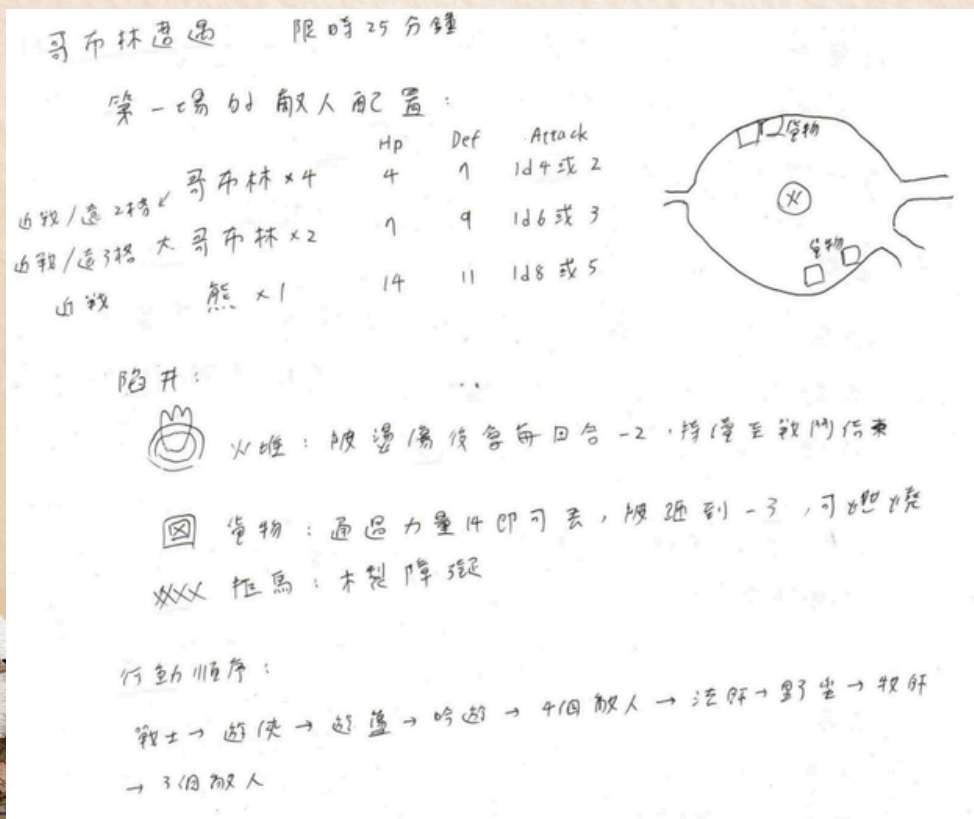 哥布林遭遇 限時25分鐘
第一場的敵人配置:
Hp Def Attack
近戰/遠2格 哥布林×4 4 7 1d4或2
近戰/遠3格 大哥布林×2 7 9 1d6或3
近戰 熊×1 14 11 1d8或5
貨物
火
貨物
陷井:
火堆:被燙傷後會每回合-2,持續至戰鬥結束
貨物:通過力量14即可丟,被砸到-3,可燃燒
拒馬:木製障礙
行動順序:
戰士→遊俠→遊蕩→吟遊→4個敵人→法師→野蠻→牧師
→3個敵人